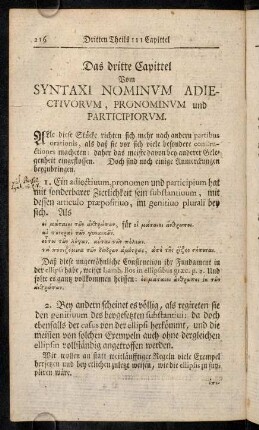 216 Dritten Theils III Capittel
Das dritte Capittel
Vom
SYNTAXI NOMINVM ADIE-
CTIVORVM, PRONOMINVM und
PARTICIPIORVM.
Alle diese Stücke richten sich mehr nach andern partibus
orationis, als daß sie vor sich viele besondere constru-
ctiones macheten: daher das meiste davon bey anderer Gele-
genheit eingeflossen. Doch sind noch einige Anmerckungen
beyzubringen.
1. Ein adiectiuum, pronomen und participium hat
mit sonderbarer Zierlichkeit sein substantiuum, mit
dessen articulo praepositiuo, im genitiuo plurali bey
sich. Als
οἱ μάταιοι τῶν ἀνθρώπων, für οἱ μάταιοι ἄνθρωποι.
Daß diese ungewöhnliche Construction ihr Fundament in
der ellipsi habe, weiset Lamb. Bos in ellipsibus graec. p. 9. Und
solte es gantz vollkommen heissen: οἱ μάταιοι ἄνθρωποι ἐκ τῶν
ἀνθρώπων.
2. Bey andern scheinet es völlig, als regireten sie
den genitiuum des beygesetzten substantiui: da doch
ebenfalls der casus von der ellipsi herkommt, und die
meisten von solchen Exempeln auch ohne dergleichen
ellipsin vollständig angetroffen werden.
Wir wollen an statt weitläuffiger Regeln viele Exempel
hersetzen und bey etlichen zuletzt weisen, wie die ellipsis zu sup-
pliren wäre.